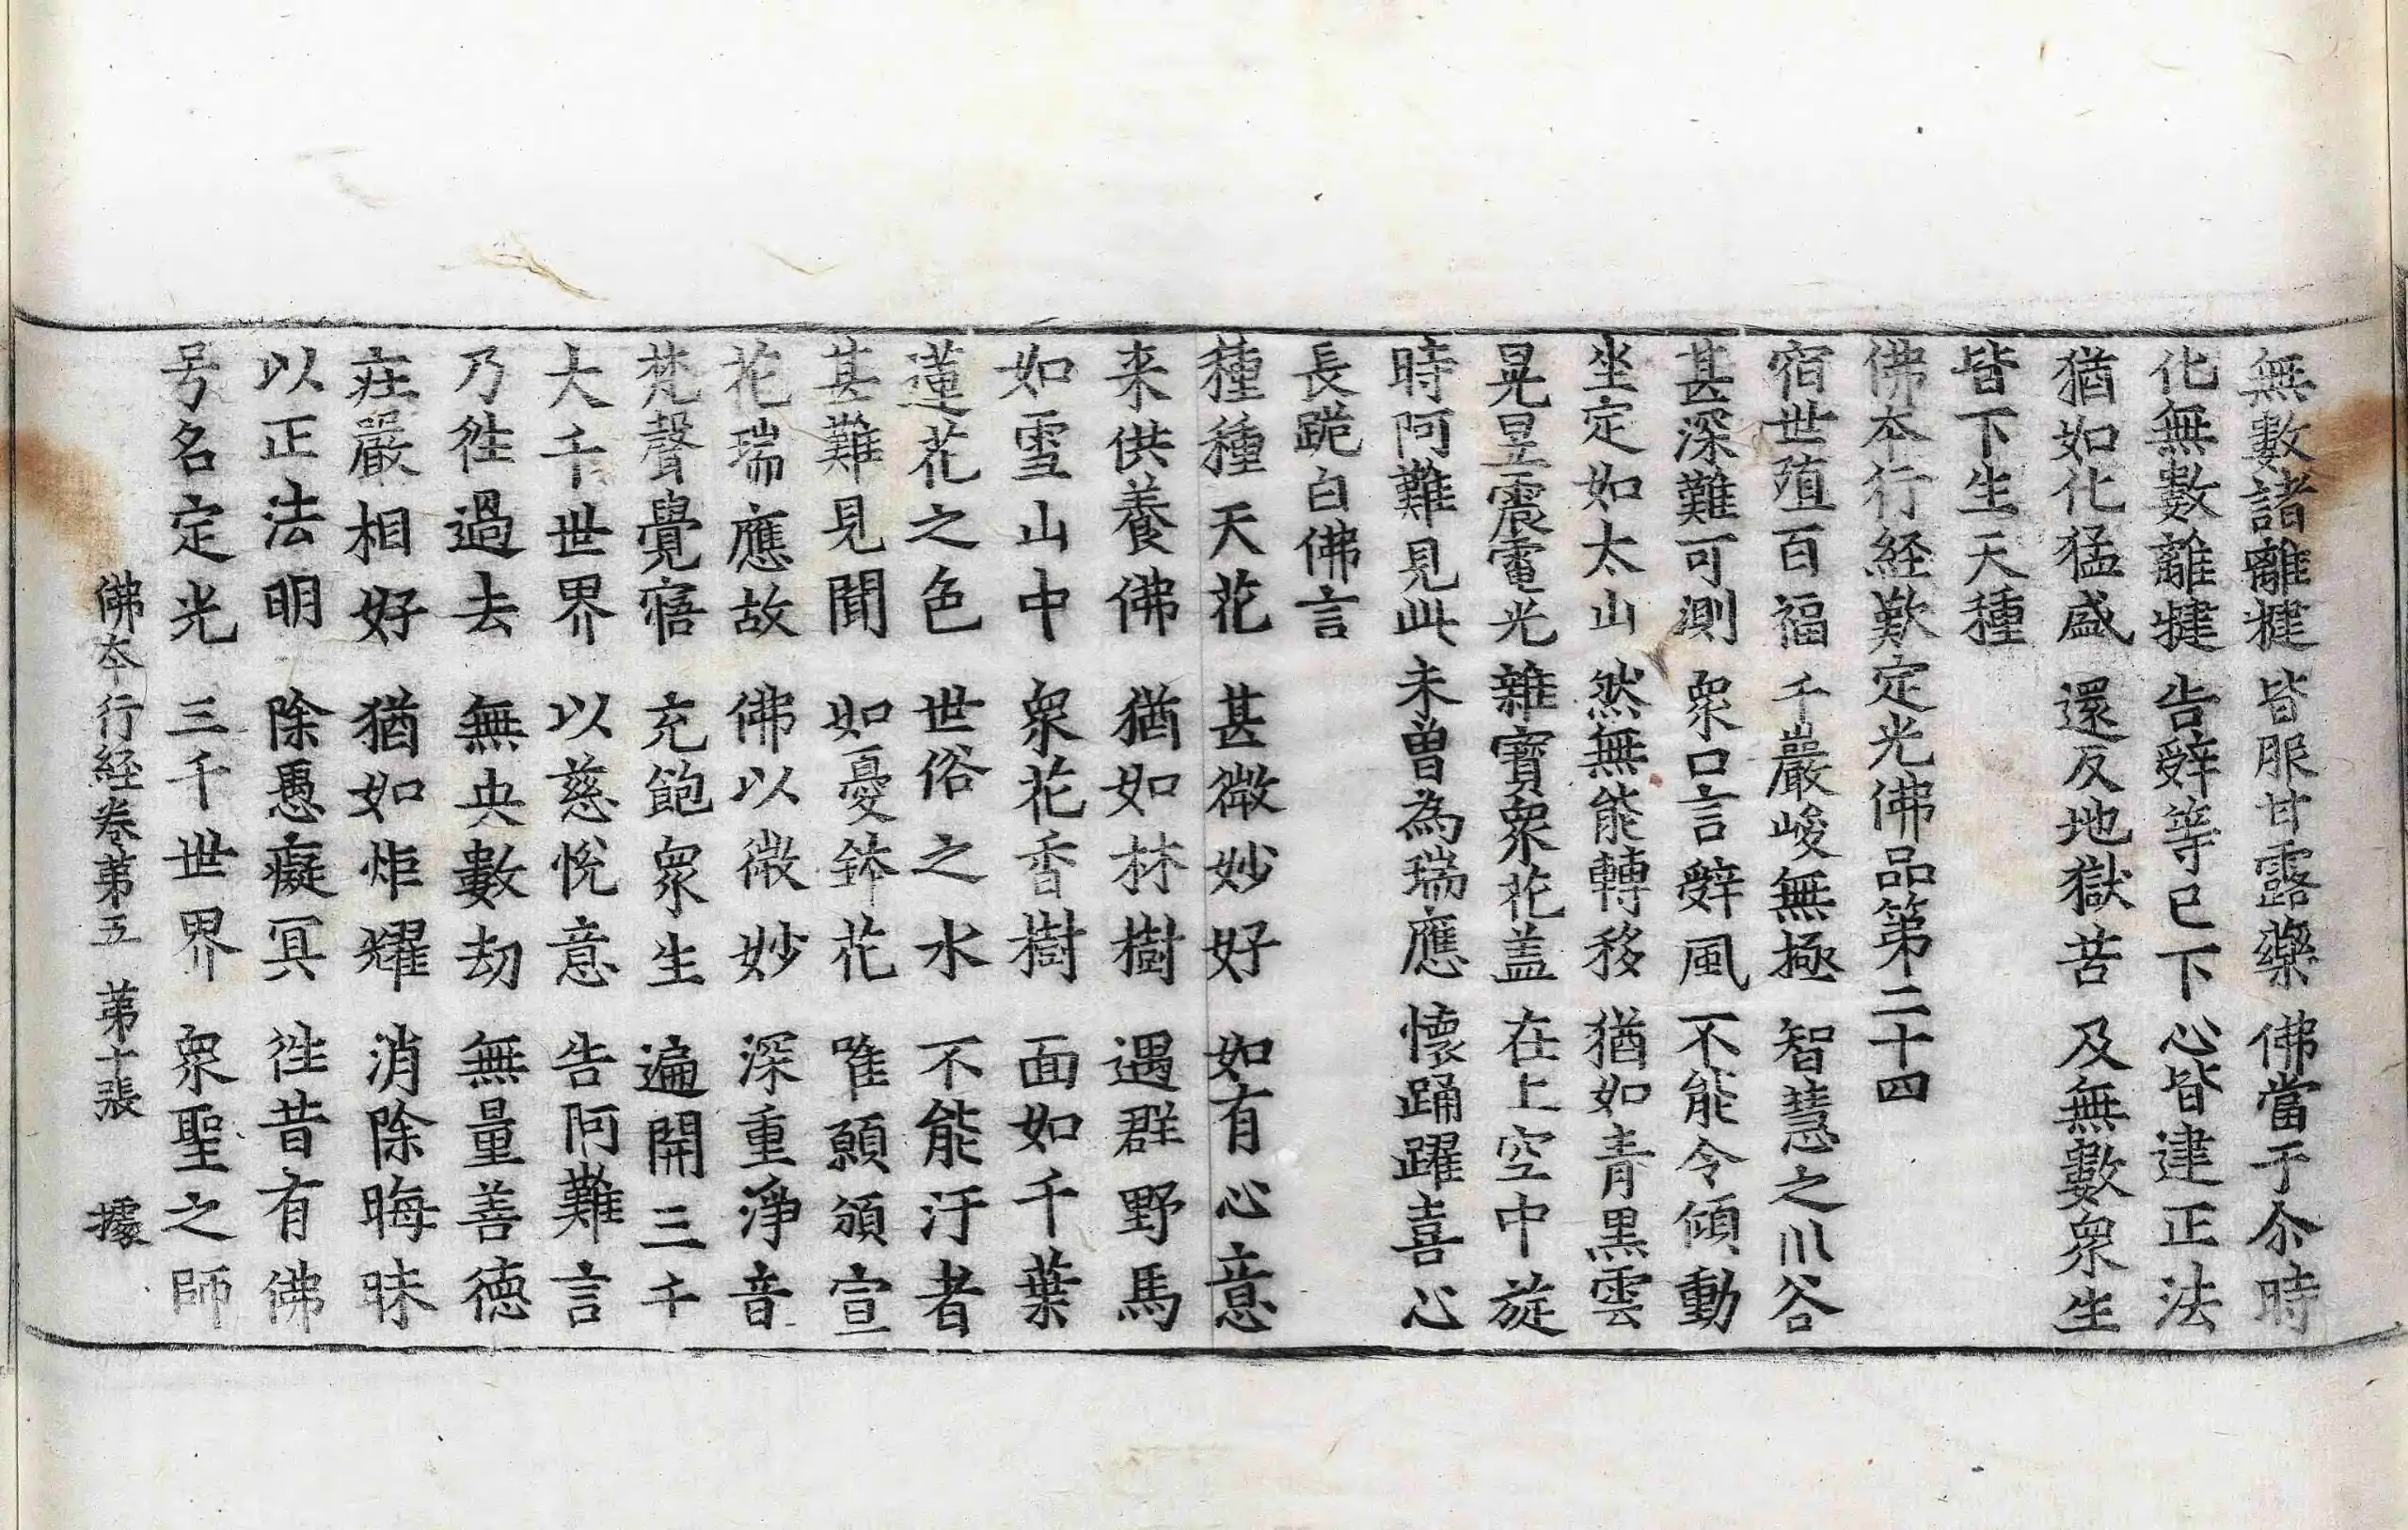 無數諸離揵 皆服甘露藥 佛當于尒時
化無數離揵 告辤等已下 心皆建正法
猶如化猛盛 還反地獄苦 及無數衆生
皆下生天種
佛本行経歎定光佛品第二十四
宿世殖百福 千巖峻無極 智慧之川谷
甚深難可測 衆口言辤風 不能令傾動
坐定如太山 然無能轉移 猶如青黒雲
晃昱震電光 雜寶衆花盖 在上空中旋
時阿難見此 未曽為瑞應 懷踊躍喜心
長跪白佛言
種種天花 甚微妙好 如有心意
来供養佛 猶如林樹 遇群野馬
如雪山中 衆花香樹 面如千葉
蓮花之色 世俗之水 不能汙者
甚難見聞 如憂鉢花 唯願頒宣
花瑞應故 佛以微妙 深重淨音
梵聲覺寤 充飽衆生 遍開三千
大千世界 以慈悅意 告阿難言
乃徃過去 無央數劫 無量善徳
莊嚴相好 猶如炬耀 消除晦昧
以正法明 除愚癡冥 徃昔有佛
号名定光 三千世界 衆聖之師
佛本行経卷第五 第十張 據